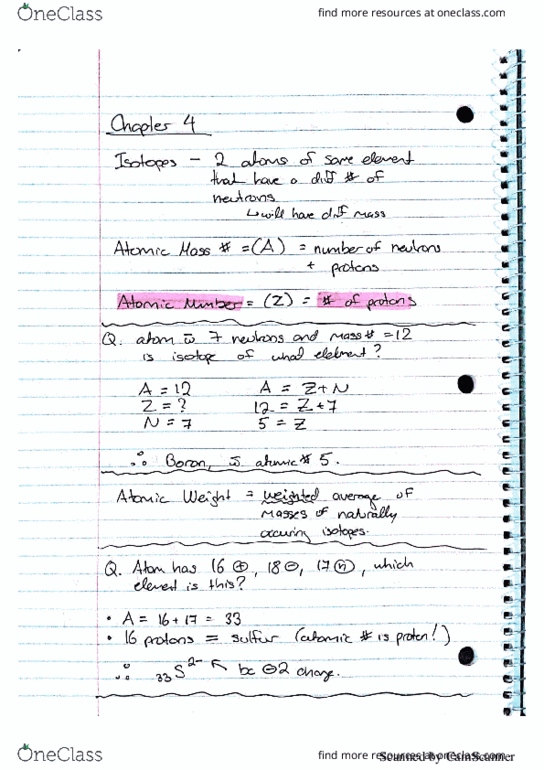 OneClass
find more resources at oneclass.com
Chapter 4
Isotopes - 2 atoms of same element
that have a diff # of
neutrons
↳ will have diff mass
Atomic Mass # = (A) = number of neutrons
+ protons
Atomic Number = (Z) = # of protons
Q. atom w̄ 7 neutrons and mass # = 12
is isotope of what element?
A = 12 A = Z + N
Z = ? 12 = Z + 7
N = 7 5 = Z
∴ Boron, w̄ atomic # 5.
Atomic Weight = weighted average of
masses of naturally
occuring isotopes.
Q. Atom has 16 ⊕, 18 ⊖, 17 ⓝ, which
element is this?
• A = 16 + 17 = 33
• 16 protons = sulfur (atomic # is proton!)
∴ 33 S 2- ↖ bc ⊖2 charge.
OneClass
find more resources at oneclass.com
Scanned by CamScanner